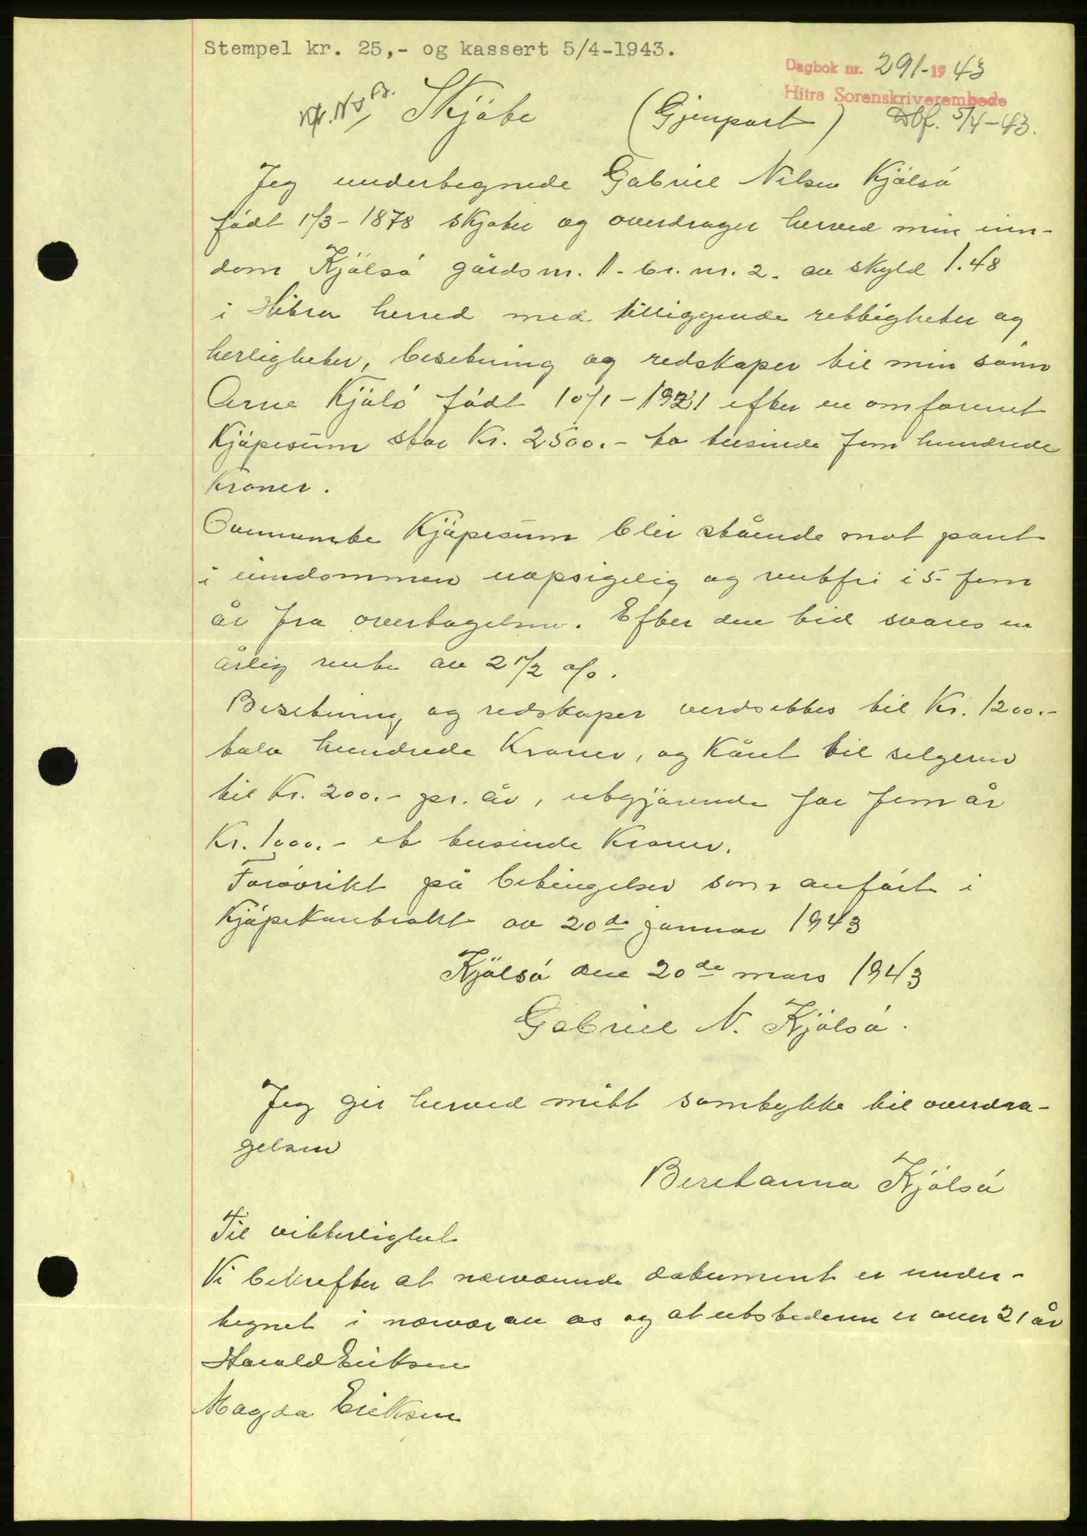 Stempel kr. 25,- og kassert 5/4-1943.
Dagbok nr. 291-1943
Hitra Sorenskriverembede
Dbf. 5/4-43.
Skjöte (Gjenpart)
Jeg undertegnede Gabriel Nilsen Kjölsö
född 1/3-1878 skjöter og overdrager herved min ein-
dom Kjölsö gårdsnr. 1. br. nr. 2. av skyld 1.48
i Hitra herred med tilliggende rettigheter og
herligheter, besetning og redskaper til min sönn
Arne Kjölsö född 10/1-1921 efter en omforenet
Kjöpesum stor Kr. 2500.- to tusinde fem hundrede
Kroner.
Ovennevnte Kjöpesum blir stående mot pant
i eiendommen uopsigelig og rentfri i 5 fem
år fra overtagelsen. Efter den tid svares en
årlig rente av 2 1/2 o/o.
Besetning og redskaper verdsettes til Kr. 1200.-
tolv hundrede Kroner, og Kåret til selgeren
til Kr. 200.- pr. år, utgjörende for fem år
Kr. 1000.- et tusinde Kroner.
Forövrikt på betingelser som anfört i
Kjöpekontrakt av 20de januar 1943
Kjölsö den 20de mars 1943
Gabriel N. Kjölsö.
Jeg gir herved mitt samtykke til overdra-
gelsen
Beretanna Kjölsö
Til vitterlighet
Vi bekrefter at nærværende dokument er under-
tegnet i nærvær av os og at utstederen er over 21 år
Harald Eriksen
Magda Eriksen